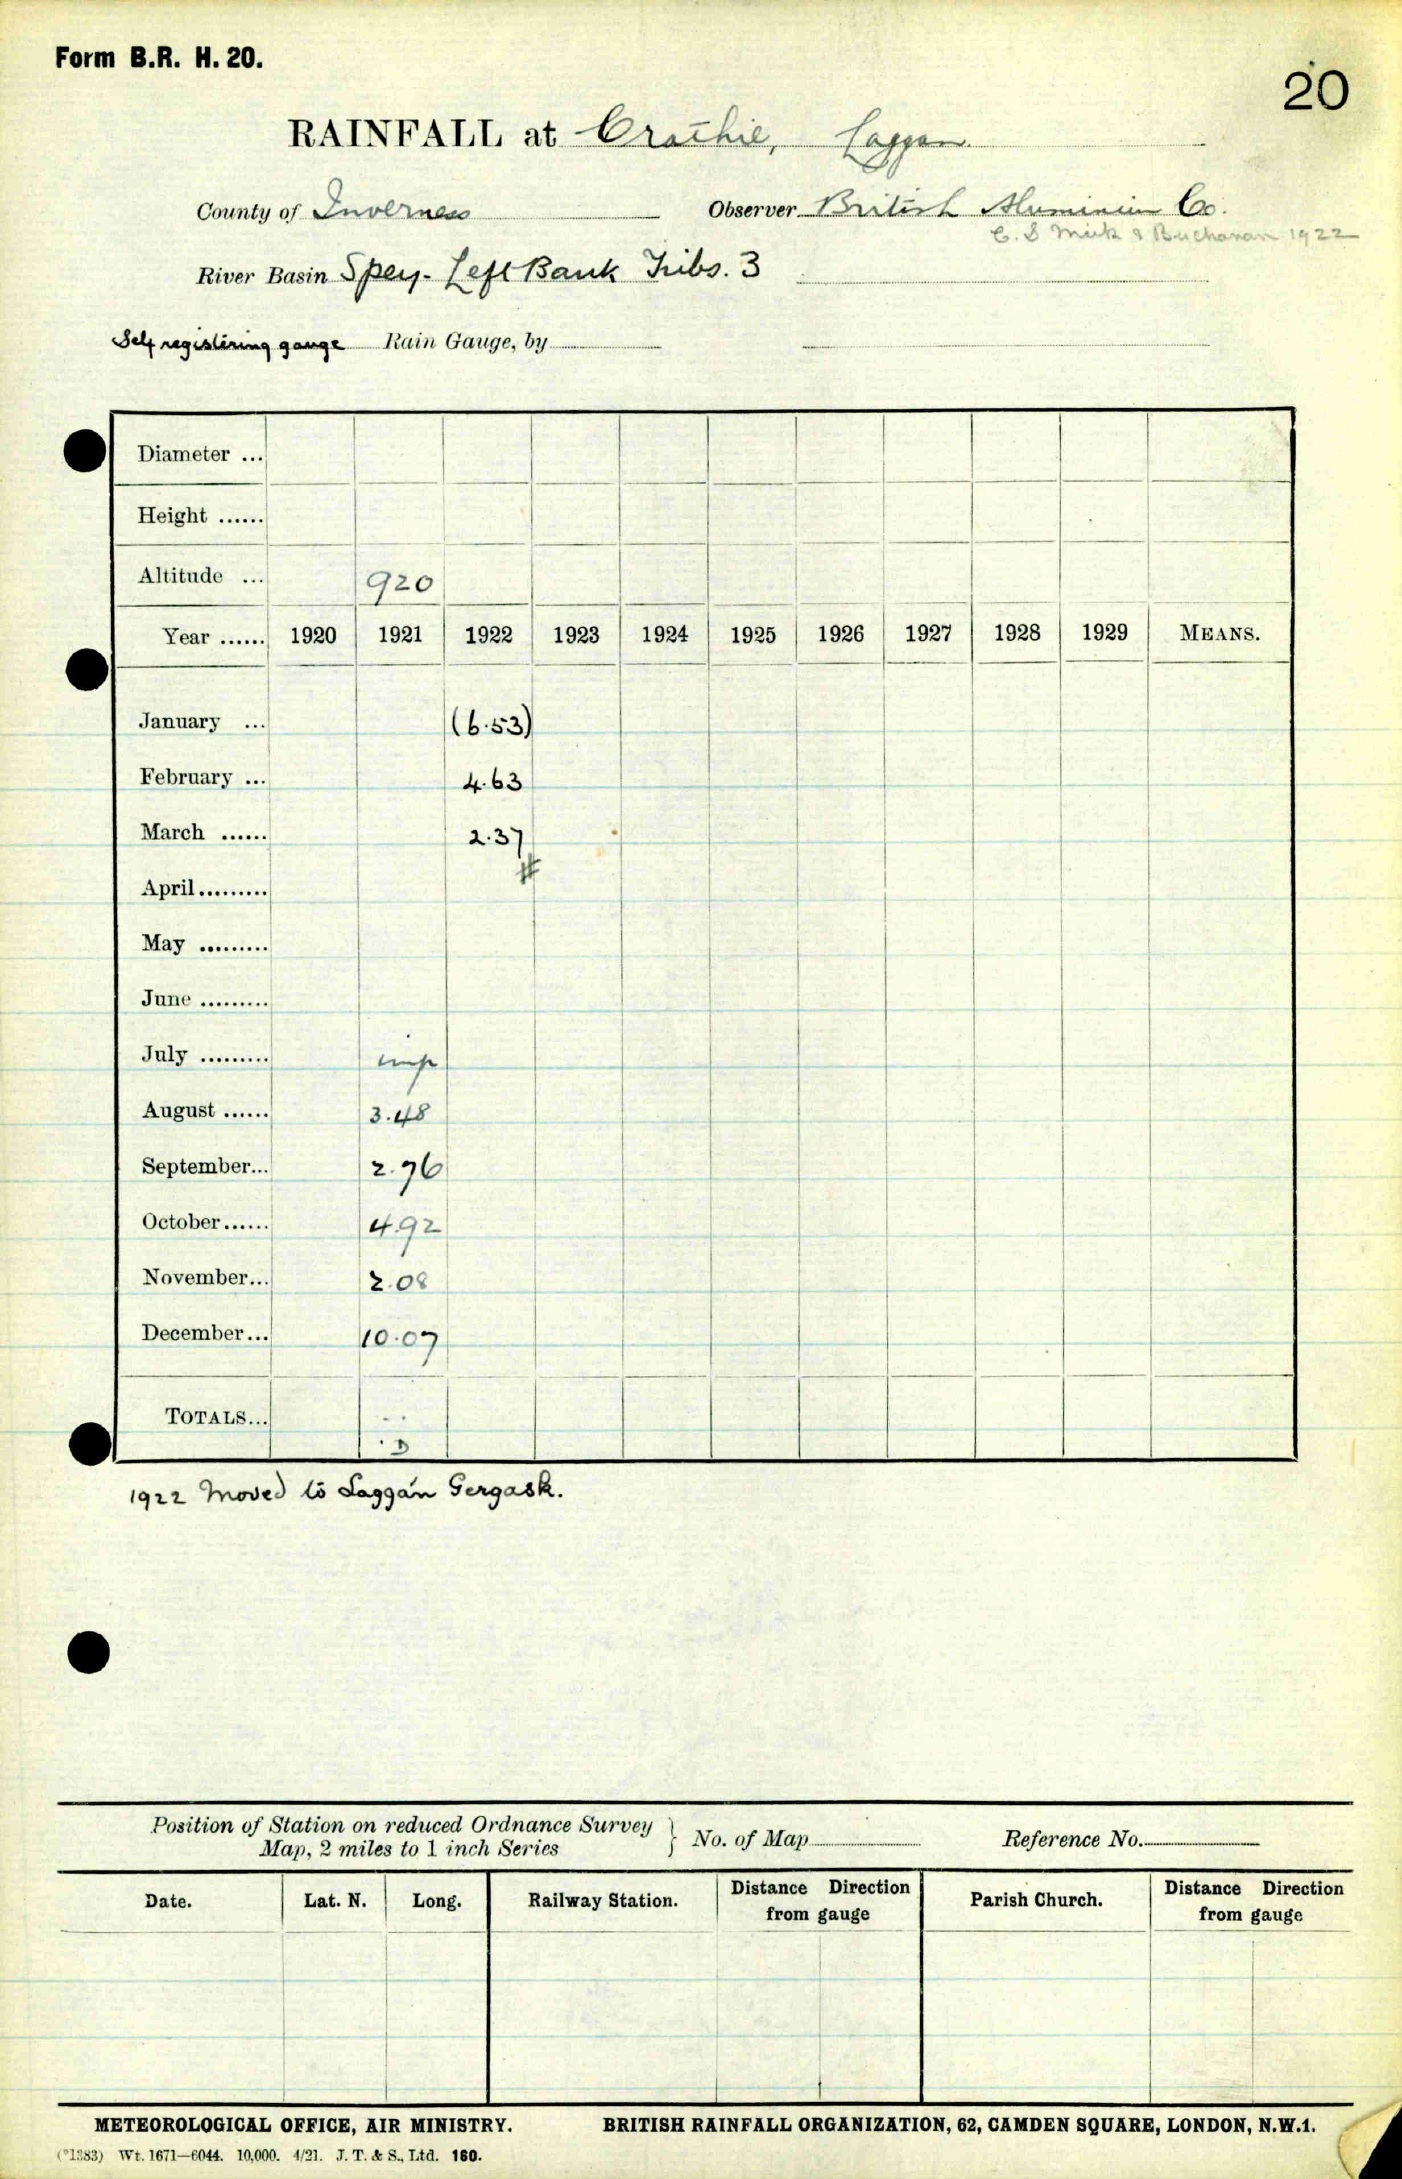 Form B.R. H. 20.
20
RAINFALL at Crathie, Laggan.
County of Inverness Observer British Aluminium Co.
C. S Meik & Buchanan 1922
River Basin Spey - Left Bank Tribs. 3
Self registering gauge Rain Gauge, by
Diameter ...
Height ......
Altitude ... 920
Year ...... 1920 1921 1922 1923 1924 1925 1926 1927 1928 1929 MEANS.
January ... (6.53)
February ... 4.63
March ...... 2.37
#
April.........
May .........
June .........
July ......... imp
August ...... 3.48
September... 2.76
October...... 4.92
November... 2.08
December... 10.07
TOTALS... D
1922 Moved to Laggan Gergask.
Position of Station on reduced Ordnance Survey
Map, 2 miles to 1 inch Series } No. of Map Reference No.
Date. Lat. N. Long. Railway Station. Distance Direction from gauge Parish Church. Distance Direction from gauge
METEOROLOGICAL OFFICE, AIR MINISTRY. BRITISH RAINFALL ORGANIZATION, 62, CAMDEN SQUARE, LONDON, N.W.1.
(*1383) Wt. 1671—6044. 10,000. 4/21. J. T. & S., Ltd. 160.